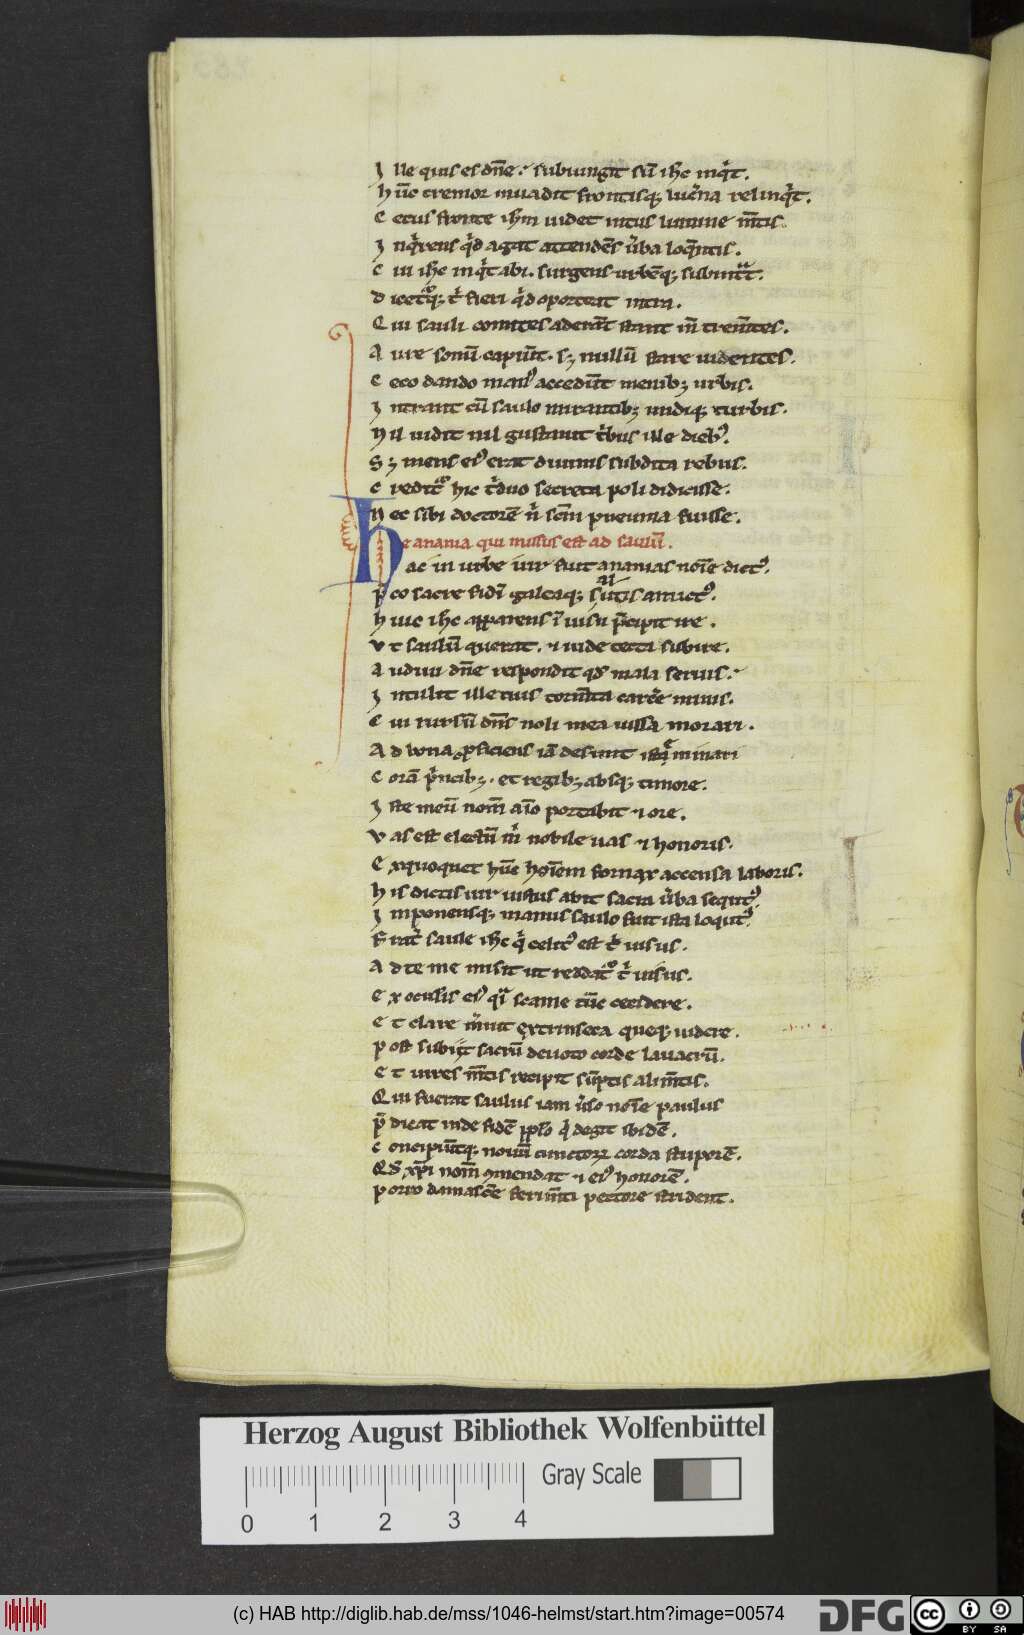 J lle quis es dn̄e : subiungit su᷑ ih̄c inq̇t .
h ūc tremor inuadit frontisq; luc̄na relinq̇t .
C ecus fronte ih̄m uidet intus lumine m̄tis .
J nq̇rens q̇d agat attendēs u̇ba loq̄ntis .
C ui ih̄c inq̇t abi . surgens urbēq; subint̄t .
D icet᷑q; t̓ fieri q̇d oporteat intra .
Q ui sauli comites aderān̄t stant in̄ trem̄tes .
A ure sonū capiūt . s; nullū stare uidentes .
C eco dando manꝰ accedūt menib; urbis .
J ntrant cū saulo mirantib; undiq; turbis .
N il uidit nil gustauit t̓bus ille diebꝰ .
S ; mens eiꝰ erat diuinis subdita rebus .
C redit᷑ hic t̓duo secreta poli didicisse .
N ec sibi doctorē n̓ sc̄m pneuma fuisse .
De anania qui missus est ad saulū .
Hac in urbe uir fuit ananias noīe dictꝰ .
p̄ co sacre fidi galeaq; salutis amictꝰ .
h uic ih̄c apparens ī uisu p̄cipit ire .
V t saulū querat . ⁊ uide tecta subire .
A udiui dn̄e respondit qd̓ mala seruis :
J ntulit ille tuis torm̄ta carc̄e minis .
C ui rursū dn̄s noli mea iussa morari .
A d bona ꝓficiens iā desinit ista minari
C orā p̓ncib; . et regib; absq; timore .
J ste meū nom̄ aīo portabit ⁊ ore .
V as est electū m̓ nobile uas ⁊ honoris .
E xquoquet hūc hoīem fornax accensa laboris .
h is dictis uir iustus abit sacra u̇ba sequtꝰ .
J mponensq; manus saulo fuit ista loqutꝰ .
F rat̄ saule ih̄c q̇ celitꝰ est t̓ uisus .
A d te me misit ut reddat᷑ t̓ uisus .
E x oculis eiꝰ q̓i scame tūc cecidere .
E t clare m̓uit extrinseca queq; uidere .
p ost subijt sacrū deuoto corde lauacrū .
E t uires m̄tis recipit sūptis alim̄tis .
Q ui fuerat saulus iam u̇so noīe paulus
p̄ dicat inde fidē pplō q̇ degit ibidē .
C oncipiūtq; nouū cunctoꝝ corda stuporē .
Qd̓ xp̄i nom̄ ꝯmendat ⁊ eiꝰ honorē .
p orro damascēe ferim̄ti pectore strident .
Herzog August Bibliothek Wolfenbüttel
Gray Scale
0 1 2 3 4
(c) HAB http://diglib.hab.de/mss/1046-helmst/start.htm?image=00574
DFG
cc BY SA